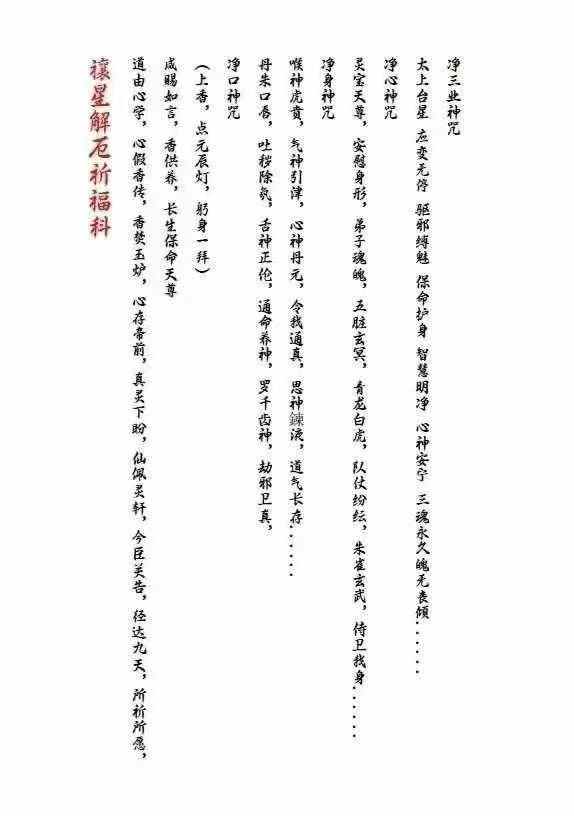 禳星解厄祈福科
道由心学，心假香传，香焚玉炉，心存帝前，真灵下盼，仙佩灵轩，今臣关告，径达九天，所祈所愿，
咸赐如言，香供养，长生保命天尊
（上香，点元辰灯，躬身一拜）
净口神咒
丹朱口唇，吐秽除氛，舌神正伦，通命养神，罗千齿神，劫邪卫真，
喉神虎贲，气神引津，心神丹元，令我通真，思神鍊液，道气长存......
净身神咒
灵宝天尊，安慰身形，弟子魂魄，五脏玄冥，青龙白虎，队仗纷纭，朱雀玄武，侍卫我身......
净心神咒
太上台星 应变无停 驱邪缚魅 保命护身 智慧明净 心神安宁 三魂永久魄无丧倾......
净三业神咒